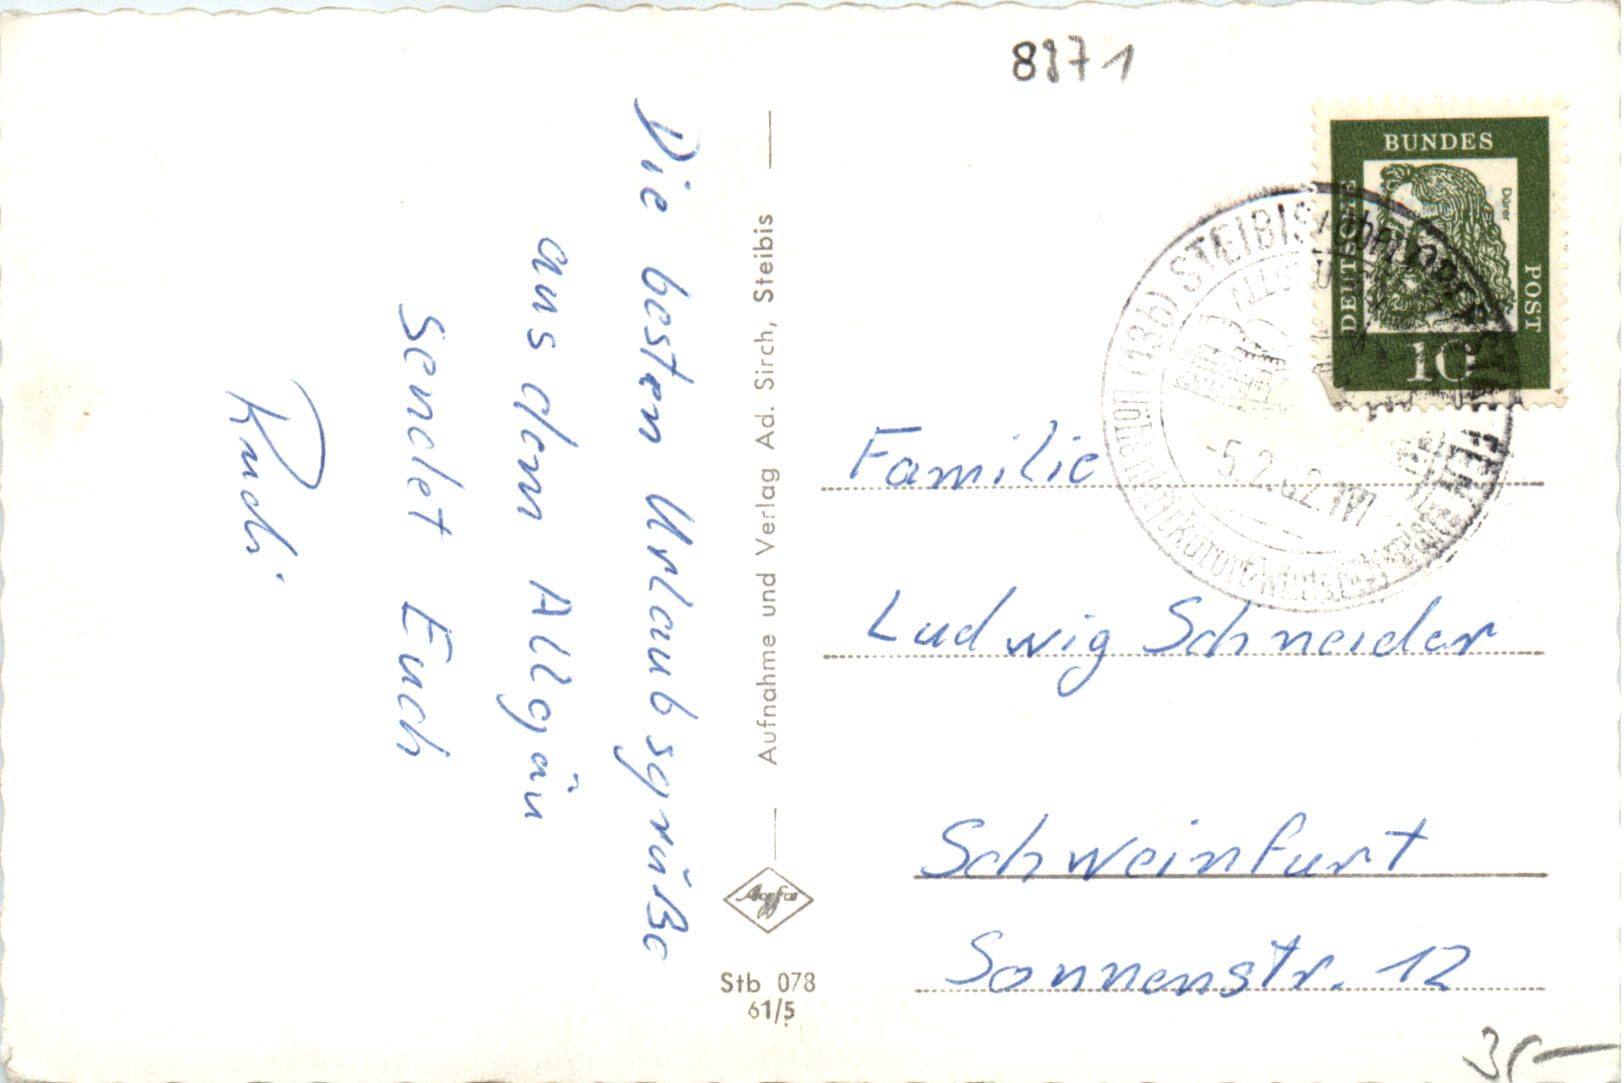 Die besten Urlaubsgrüße
aus dem Allgäu
sendet Euch
Rudi
Aufnahme und Verlag Ad. Sirch, Steibis
Agfa
Stb 078
61/5
8971
DEUTSCHE
BUNDES
POST
Dürer
10
(13b) STEIBIS
-5.2.62
Familie
Ludwig Schneider
Schweinfurt
Sonnenstr. 12